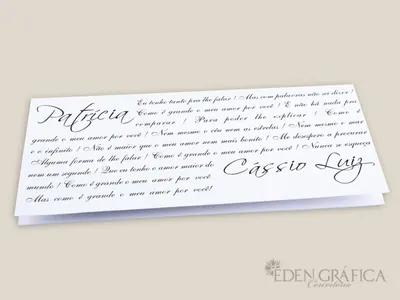 Patrícia
Eu tenho tanto pra lhe falar ! Mas com palavras não sei dizer !
Como é grande o meu amor por você ! E não há nada pra
comparar ! Para poder lhe explicar ! Como é
grande o meu amor por você ! Nem mesmo o céu nem as estrelas ! Nem mesmo o mar
e o infinito ! Não é maior que o meu amor nem mais bonito ! Me desespero a procurar
Alguma forma de lhe falar ! Como é grande o meu amor por você ! Nunca se esqueça
nem um segundo ! Que eu tenho o amor maior do
Cássio Luiz
mundo ! Como é grande o meu amor por você !
Mas como é grande o meu amor por você!
EDEN GRÁFICA
Convitelaria